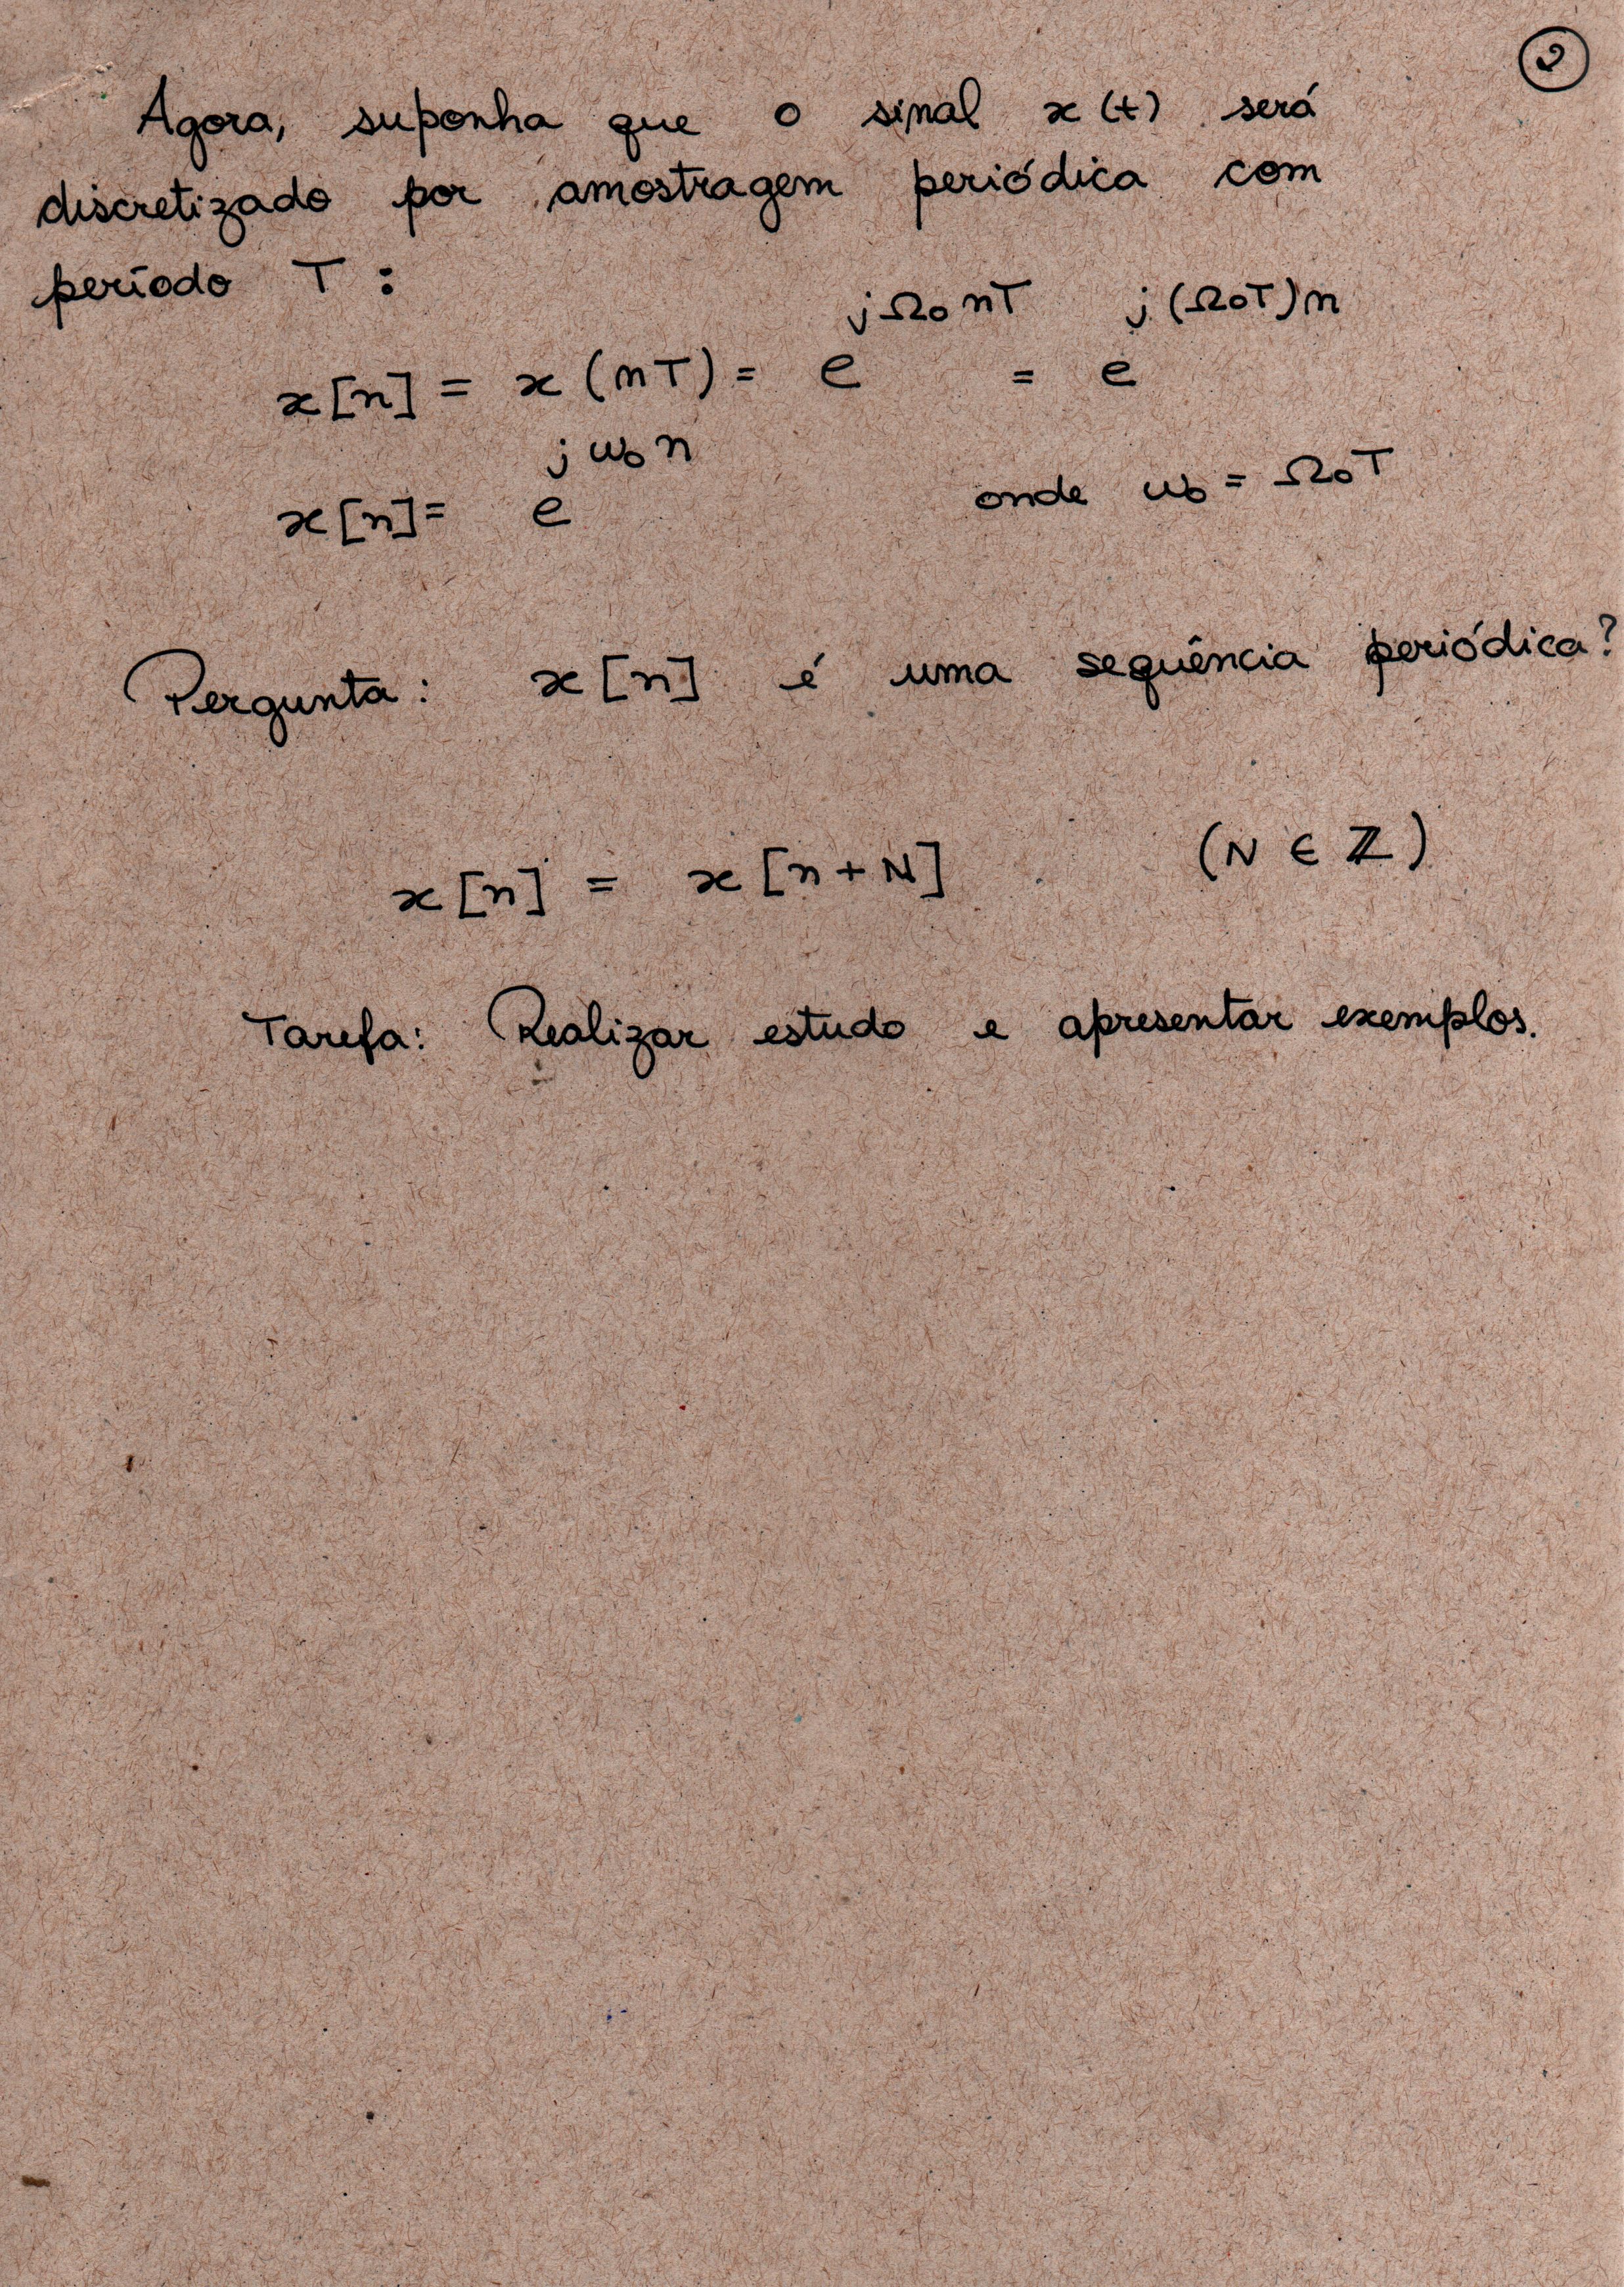 2
Agora, suponha que o sinal x(t) será
discretizado por amostragem periódica com
período T :
x[n] = x(nT) = e^{jΩ₀nT} = e^{j(Ω₀T)n}
x[n] = e^{jω₀n} onde ω₀ = Ω₀T
Pergunta: x[n] é uma sequência periódica?
x[n] = x[n+N] (N ∈ ℤ)
Tarefa: Realizar estudo e apresentar exemplos.